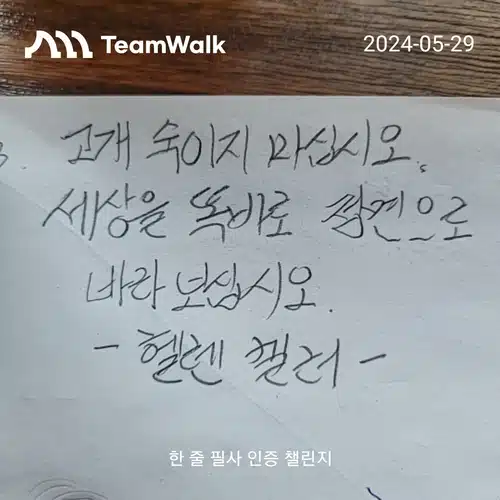 TeamWalk
2024-05-29
3. 고개 숙이지 마십시오.
세상을 똑바로 정면으로
바라보십시오.
- 헬렌 켈러 -
한 줄 필사 인증 챌린지